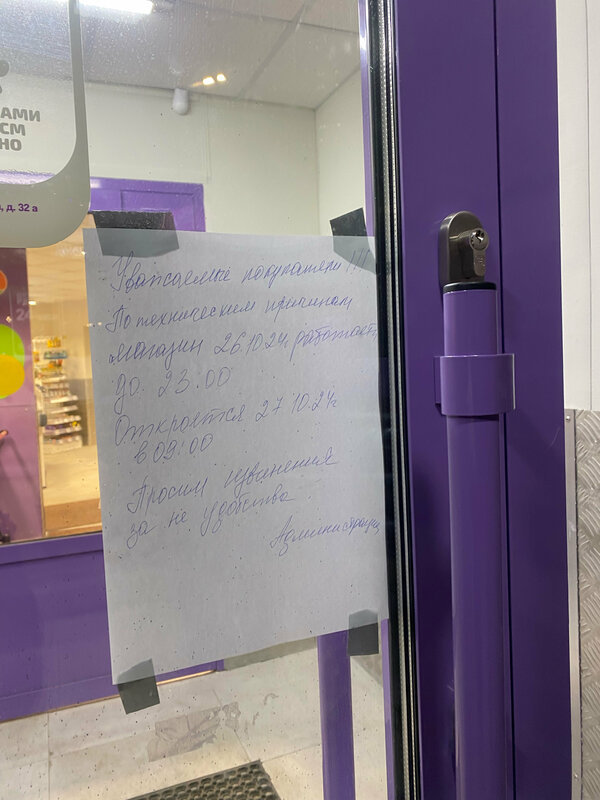 АМИ
СМ
НО
, д. 32 а
Уважаемые покупатели !!!
По техническим причинам
магазин 26.10.24 работает
до 23.00
Откроется 27.10.24г
в 09:00
Просим извенения
за не удобства
Администрация